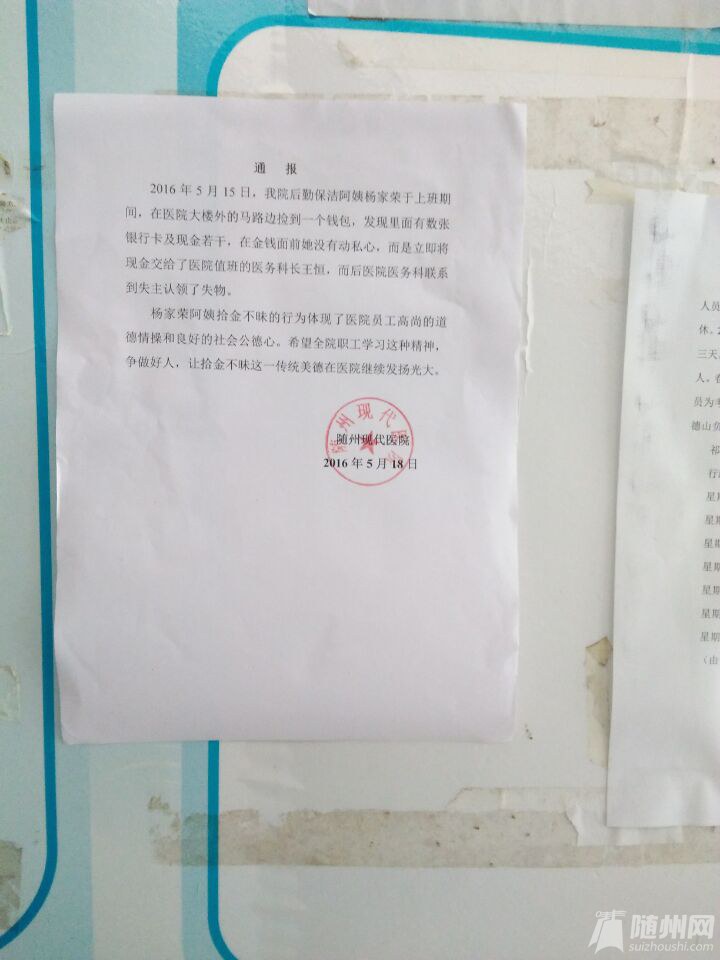 通 报
2016 年 5 月 15 日，我院后勤保洁阿姨杨家荣于上班期
间，在医院大楼外的马路边捡到一个钱包，发现里面有数张
银行卡及现金若干，在金钱面前她没有动私心，而是立即将
现金交给了医院值班的医务科长王恒，而后医院医务科联系
到失主认领了失物。
杨家荣阿姨拾金不昧的行为体现了医院员工高尚的道
德情操和良好的社会公德心。希望全院职工学习这种精神，
争做好人，让拾金不昧这一传统美德在医院继续发扬光大。
随州现代医院
随州现代医院
2016 年 5 月 18 日
人员
休。2
三天
人。
员为
德山
祁
行
星期
星期
星期
星期
星期
星期
星期
（由
随州网
suizhoushi.com